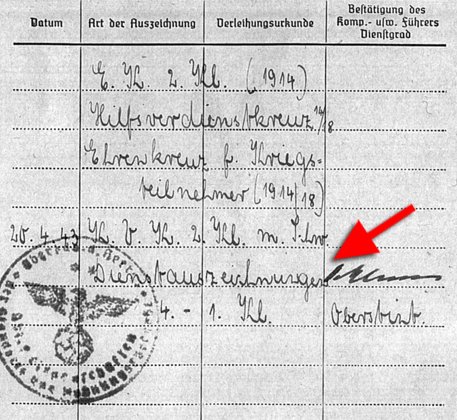 Datum
Art der Auszeichnung
Verleihungsurkunde
Bestätigung des
Komp.- usw. Führers
Dienstgrad
E. K. 2. Kl. (1914)
Hilfsverdienstkreuz 14/18
Ehrenkreuz f. Kriegs-
teilnehmer (1914/18)
20.4.43 K. V. K. 2. Kl. m. Schw
Dienstauszeichnungen
4. - 1. Kl. Oberstlt.